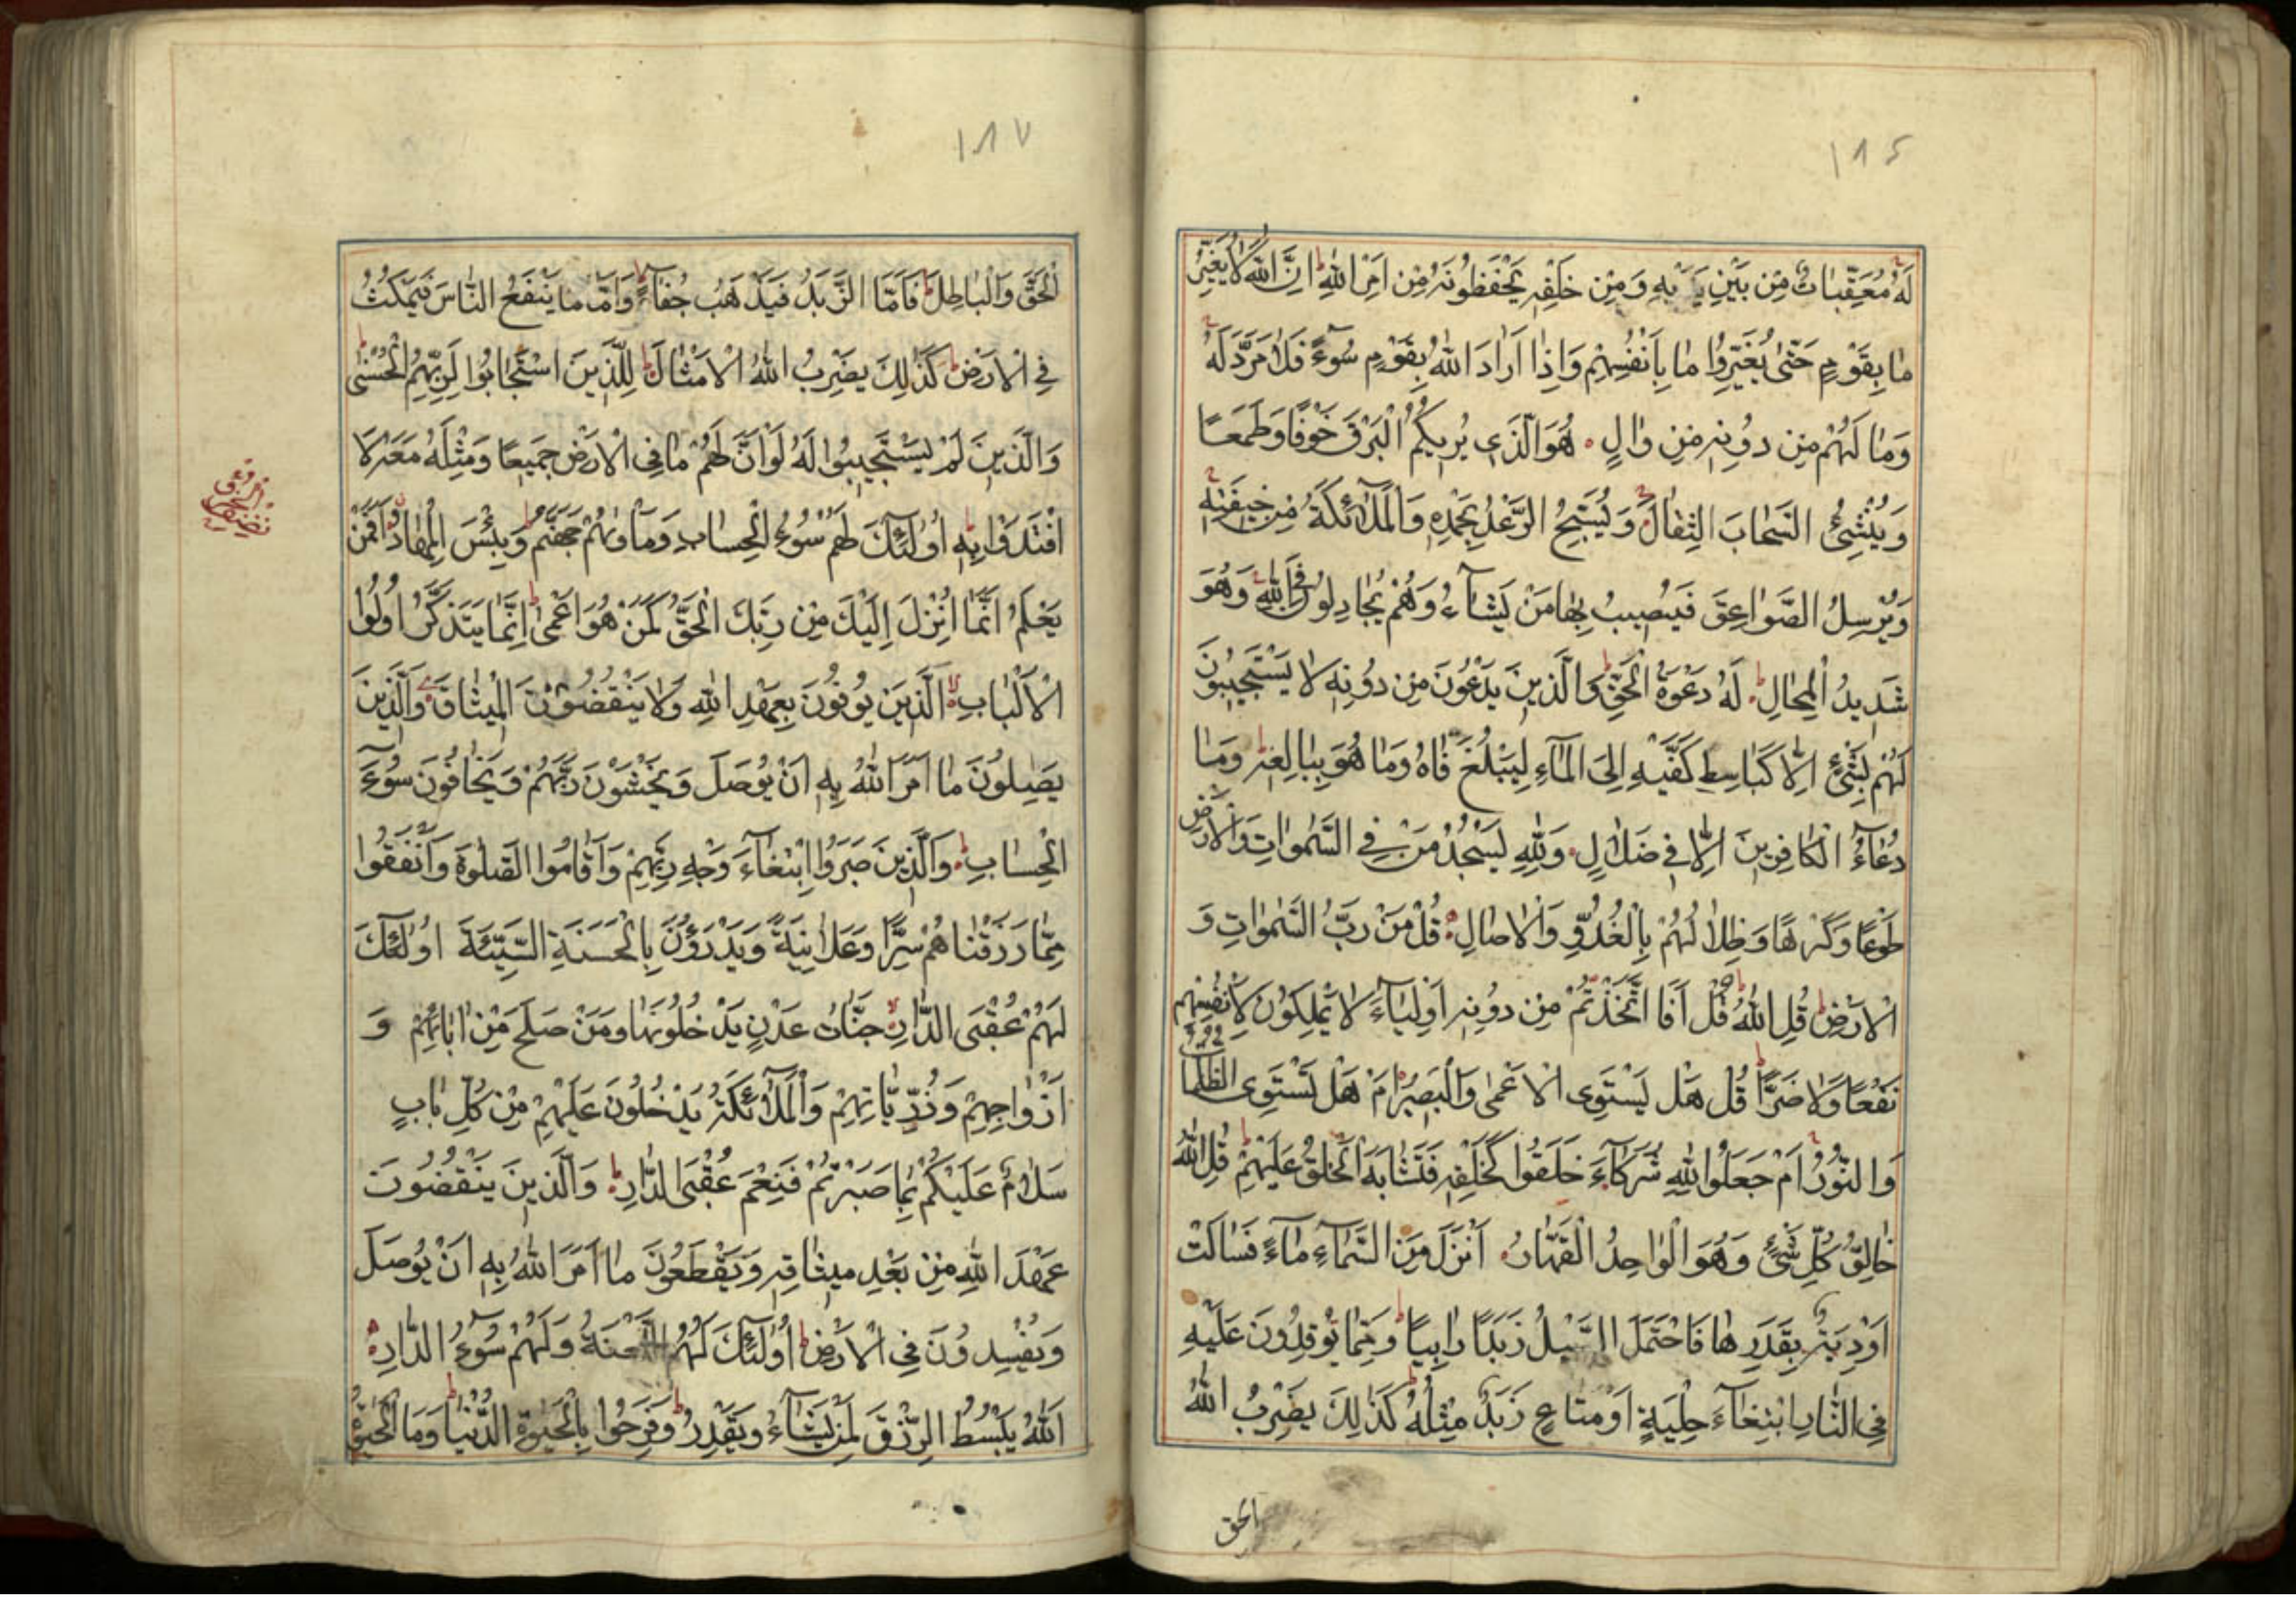 ١٨٤
لَهُ مُعَقِّبَاتٌ مِنْ بَيْنِ يَدَيْهِ وَمِنْ خَلْفِهِ يَحْفَظُونَهُ مِنْ اَمْرِ اللّٰهِ ط اِنَّ اللّٰهَ لَا يُغَيِّرُ
مَا بِقَوْمٍ حَتّٰى يُغَيِّرُوا مَا بِاَنْفُسِهِمْ وَاِذَا اَرَادَ اللّٰهُ بِقَوْمٍ سُوءً فَلَا مَرَدَّ لَهُ
وَمَا لَهُمْ مِنْ دُونِهِ مِنْ وَالٍ هُوَ الَّذِى يُرِيكُمُ الْبَرْقَ خَوْفًا وَطَمَعًا
وَيُنْشِئُ السَّحَابَ الثِّقَالَ وَيُسَبِّحُ الرَّعْدُ بِحَمْدِهِ وَالْمَلٰٓائِكَةُ مِنْ خِيفَتِهِ
وَيُرْسِلُ الصَّوَاعِقَ فَيُصِيبُ بِهَا مَنْ يَشَآءُ وَهُمْ يُجَادِلُونَ فِى اللّٰهِ وَهُوَ
شَدِيدُ الْمِحَالِ ط لَهُ دَعْوَةُ الْحَقِّ ط وَالَّذِينَ يَدْعُونَ مِنْ دُونِهِ لَا يَسْتَجِيبُونَ
لَهُمْ بِشَىْءٍ اِلَّا كَبَاسِطِ كَفَّيْهِ اِلَى الْمَآءِ لِيَبْلُغَ فَاهُ وَمَا هُوَ بِبَالِغِهِ ط وَمَا
دُعَآءُ الْكَافِرِينَ اِلَّا فِى ضَلَالٍ وَلِلّٰهِ يَسْجُدُ مَنْ فِى السَّمٰوَاتِ وَالْاَرْضِ
طَوْعًا وَكَرْهًا وَظِلَالُهُمْ بِالْغُدُوِّ وَالْاٰصَالِ قُلْ مَنْ رَبُّ السَّمٰوَاتِ وَ
الْاَرْضِ ط قُلِ اللّٰهُ ط قُلْ اَفَاتَّخَذْتُمْ مِنْ دُونِهِ اَوْلِيَآءَ لَا يَمْلِكُونَ لِاَنْفُسِهِمْ
نَفْعًا وَلَا ضَرًّا ط قُلْ هَلْ يَسْتَوِى الْاَعْمٰى وَالْبَصِيرُ اَمْ هَلْ تَسْتَوِى الظُّلُمَاتُ
وَالنُّورُ اَمْ جَعَلُوا لِلّٰهِ شُرَكَآءَ خَلَقُوا كَخَلْقِهِ فَتَشَابَهَ الْخَلْقُ عَلَيْهِمْ ط قُلِ اللّٰهُ
خَالِقُ كُلِّ شَىْءٍ وَهُوَ الْوَاحِدُ الْقَهَّارُ اَنْزَلَ مِنَ السَّمَآءِ مَآءً فَسَالَتْ
اَوْدِيَةٌ بِقَدَرِهَا فَاحْتَمَلَ السَّيْلُ زَبَدًا رَابِيًا ط وَمِمَّا يُوقِدُونَ عَلَيْهِ
فِى النَّارِ ابْتِغَآءَ حِلْيَةٍ اَوْ مَتَاعٍ زَبَدٌ مِثْلُهُ ط كَذٰلِكَ يَضْرِبُ اللّٰهُ
الحق
١٨٧
الْحَقَّ وَالْبَاطِلَ ط فَاَمَّا الزَّبَدُ فَيَذْهَبُ جُفَآءً وَاَمَّا مَا يَنْفَعُ النَّاسَ فَيَمْكُثُ
فِى الْاَرْضِ ط كَذٰلِكَ يَضْرِبُ اللّٰهُ الْاَمْثَالَ ط لِلَّذِينَ اسْتَجَابُوا لِرَبِّهِمُ الْحُسْنٰى ط
وَالَّذِينَ لَمْ يَسْتَجِيبُوا لَهُ لَوْ اَنَّ لَهُمْ مَا فِى الْاَرْضِ جَمِيعًا وَمِثْلَهُ مَعَهُ لَا
افْتَدَوْا بِهِ اُولٰٓئِكَ لَهُمْ سُوءُ الْحِسَابِ وَمَاْوٰيهُمْ جَهَنَّمُ ط وَبِئْسَ الْمِهَادُ اَفَمَنْ
يَعْلَمُ اَنَّمَا اُنْزِلَ اِلَيْكَ مِنْ رَبِّكَ الْحَقُّ كَمَنْ هُوَ اَعْمٰى ط اِنَّمَا يَتَذَكَّرُ اُولُوا
الْاَلْبَابِ لا الَّذِينَ يُوفُونَ بِعَهْدِ اللّٰهِ وَلَا يَنْقُضُونَ الْمِيثَاقَ وَالَّذِينَ
يَصِلُونَ مَا اَمَرَ اللّٰهُ بِهِ اَنْ يُوصَلَ وَيَخْشَوْنَ رَبَّهُمْ وَيَخَافُونَ سُوٓءَ
الْحِسَابِ ط وَالَّذِينَ صَبَرُوا ابْتِغَآءَ وَجْهِ رَبِّهِمْ وَاَقَامُوا الصَّلٰوةَ وَاَنْفَقُوا
مِمَّا رَزَقْنَاهُمْ سِرًّا وَعَلَانِيَةً وَيَدْرَؤُنَ بِالْحَسَنَةِ السَّيِّئَةَ اُولٰٓئِكَ
لَهُمْ عُقْبَى الدَّارِ لا جَنَّاتُ عَدْنٍ يَدْخُلُونَهَا وَمَنْ صَلَحَ مِنْ اٰبَائِهِمْ وَ
اَزْوَاجِهِمْ وَذُرِّيَّاتِهِمْ وَالْمَلٰٓائِكَةُ يَدْخُلُونَ عَلَيْهِمْ مِنْ كُلِّ بَابٍ
سَلَامٌ عَلَيْكُمْ بِمَا صَبَرْتُمْ فَنِعْمَ عُقْبَى الدَّارِ ط وَالَّذِينَ يَنْقُضُونَ
عَهْدَ اللّٰهِ مِنْ بَعْدِ مِيثَاقِهِ وَيَقْطَعُونَ مَا اَمَرَ اللّٰهُ بِهِ اَنْ يُوصَلَ
وَيُفْسِدُونَ فِى الْاَرْضِ ط اُولٰٓئِكَ لَهُمُ اللَّعْنَةُ وَلَهُمْ سُوٓءُ الدَّارِ
اَللّٰهُ يَبْسُطُ الرِّزْقَ لِمَنْ يَشَآءُ وَيَقْدِرُ ط وَفَرِحُوا بِالْحَيٰوةِ الدُّنْيَا ط وَمَا الْحَيٰوةُ